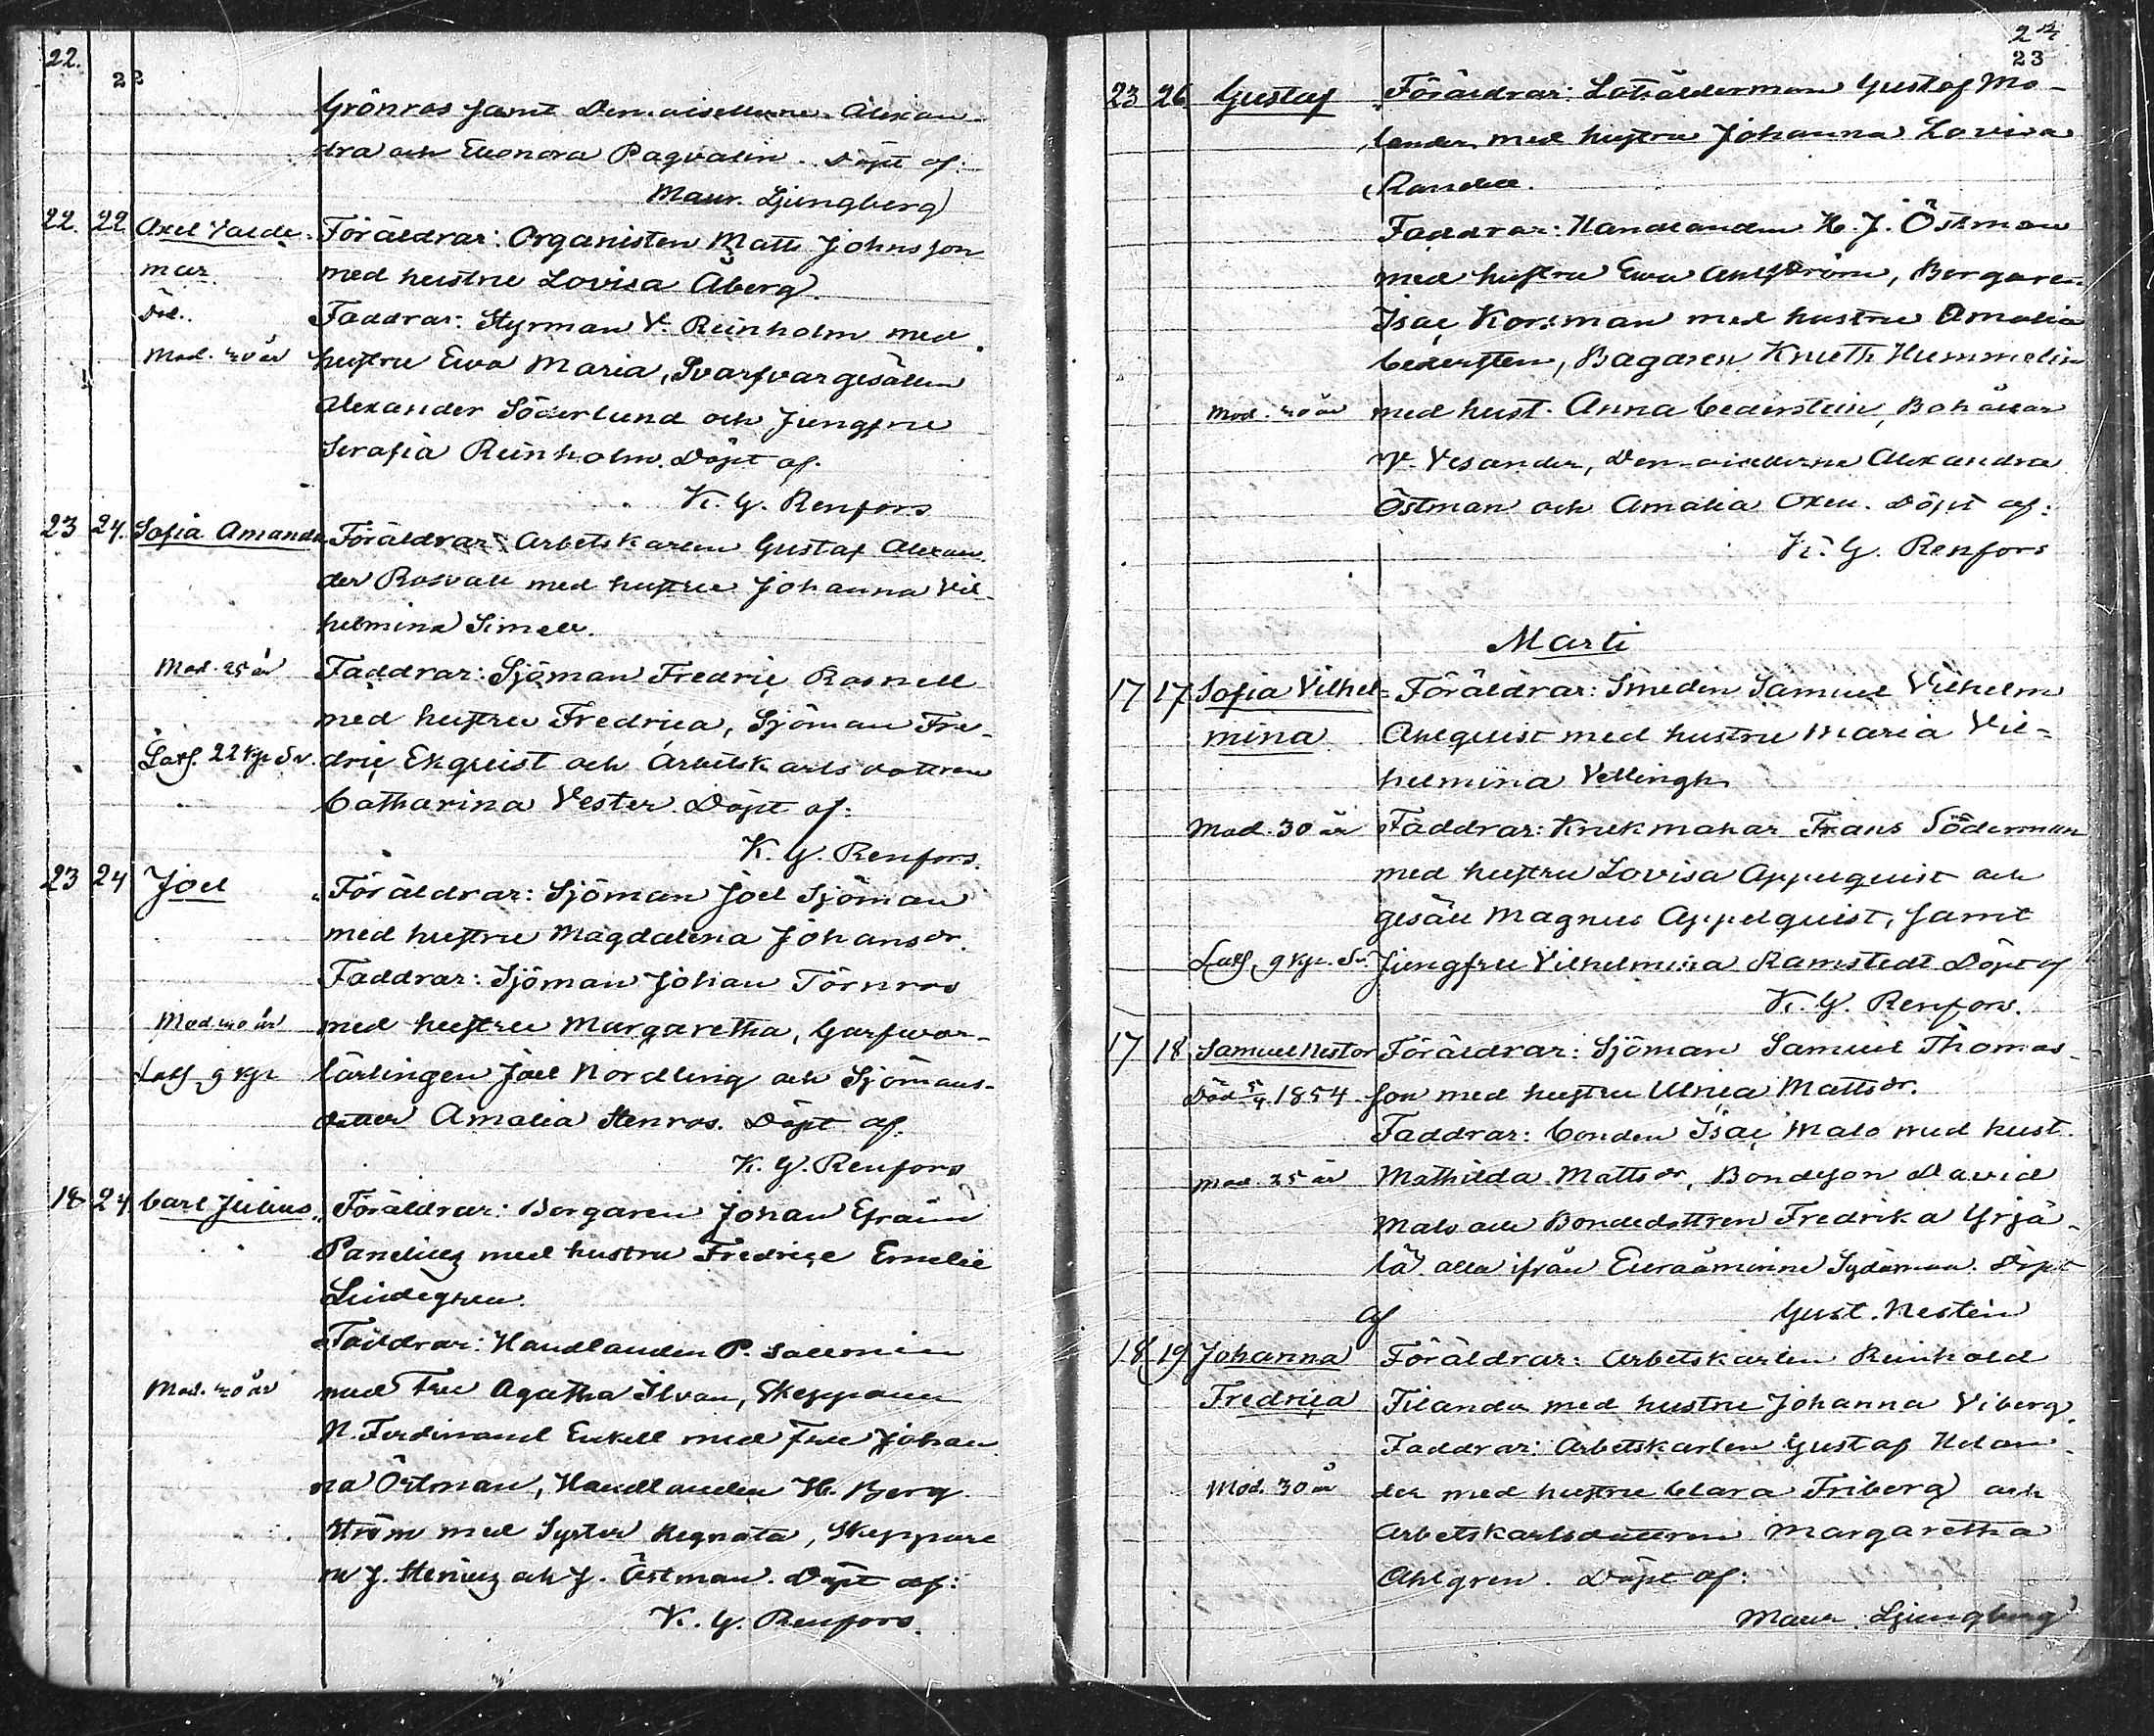 22.
22
Grönros samt Demoisellerne Alexan-
dra och Eleonora Paqvalin. Döpt af:
Maur. Ljungberg
22. 22 Axel Valde- Föräldrar: Organisten Matts Johnsson
mar med hustru Lovisa Åberg.
Död. Faddrar: Styrman V. Reinholm med
Mod. 40 år hustru Ewa Maria, Svarfvargesällen
Alexander Söderlund och Jungfru
Serafia Reinholm. Döpt af.
K. G. Renfors
23 24. Sofia Amanda Föräldrar: Arbetskarlen Gustaf Alexan-
der Rosvall med hustru Johanna Vil-
helmina Simell.
Mod. 25 år Faddrar: Sjöman Fredric Rosnell
med hustru Fredrica, Sjöman Fre-
Lasf. 22 kp. Sv. dric Ekquist och Arbetskarlsdottren
Catharina Vester. Döpt af:
K. G. Renfors.
23 24 Joel Föräldrar: Sjöman Joel Sjöman
med hustru Magdalena Johansdr.
Faddrar: Sjöman Johan Törnros
Mod. 40 år med hustru Margaretha, Garfwar-
Lasf 9 kp. lärlingen Joel Nordling och Sjömans-
dotter Amalia Stenros. Döpt af.
K. G. Renfors
18 24 Carl Julius Föräldrar: Borgaren Johan Efraim
Panelius med hustru Fredrice Emelie
Lindegren.
Faddrar: Handlanden P. Sallmin
Mod. 40 år med Fru Agatha Ilvan, Skepparen
N. Ferdinand Enkell med Fru Johan
na Östman, Handlanden H. Berg
ström med Syster Regnata, Skeppare
n J. Stenius och J. Östman. Döpt af:
K. G. Renfors.
23
23 26 Gustaf Föräldrar: Lotsålderman Gustaf Mo-
lander med hustru Johanna Lovisa
Randell.
Faddrar: Handlanden H. J. Östman
med hustru Ewa Ahlström, Borgaren
Isac Korsman med hustru Amalia
Cedersten, Bagaren Knuth Hummelin
Mod. 40 år med hust. Anna Cederstein, Bohållar
V. Vesander, Demoisellerne Alexandra
Östman och Amalia Oxen. Döpt af:
K. G. Renfors
Marti
17 17 Sofia Vilhel= Föräldrar: Smeden Samuel Vilhelm
mina Ahlquist med hustru Maria Vil=
helmina Vellingk
Mod. 30 år Faddrar: Krukmakar Frans Söderman
med hustru Lovisa Appelquist och
gesäll Magnus Appelquist, samt
Lasf. 9 kp. Sv. Jungfru Vilhelmina Ramstedt Döpt af
K. G. Renfors.
17 18 Samuel Nestor Föräldrar: Sjöman Samuel Thomas-
Död 5/4 1854. son med hustru Ulrica Mattsdr.
Faddrar: Bonden Isac Malo med hust.
Mod. 25 år Mathilda Mattsdr, Bondeson David
Malo och Bondedottren Fredrika Yrjä-
lä alla ifrån Euraåminne Sydänmaa. Döpt
af Gust. Nestein
18 19 Johanna Föräldrar: Arbetskarlen Reinhold
Fredrica Filander med hustru Johanna Viberg.
Faddrar: Arbetskarlen Gustaf Helan-
Mod. 30 år der med hustru Clara Friberg och
Arbetskarlsdottren Margaretha
Ahlgren. Döpt af:
Maur. Ljungberg